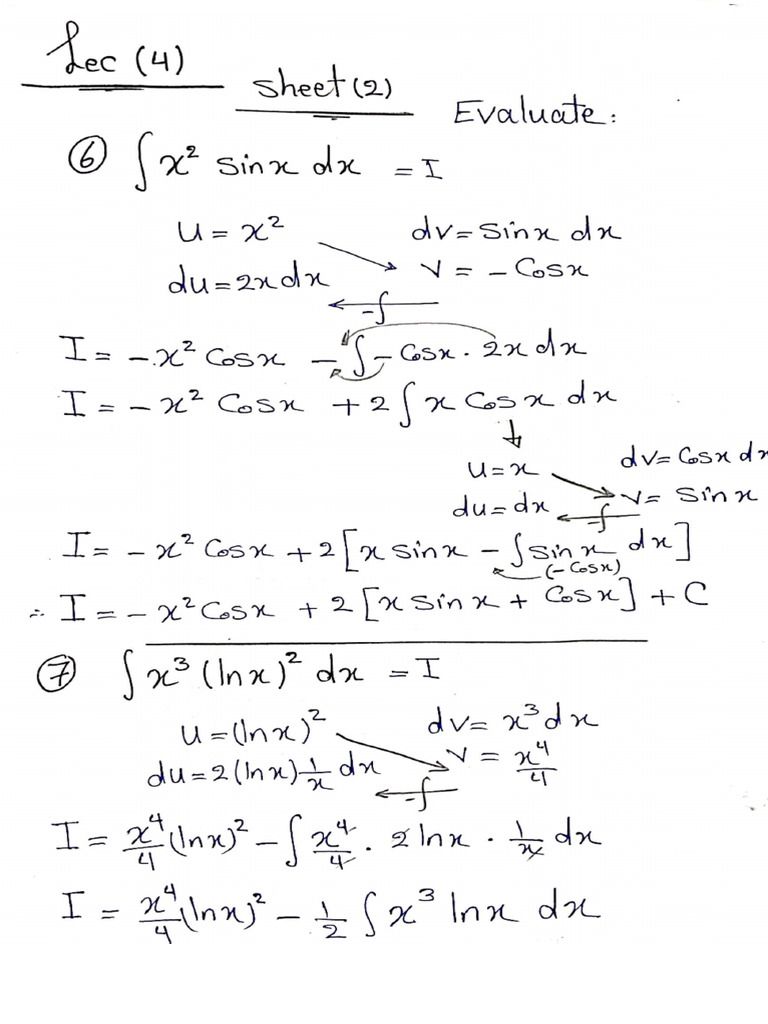 Lec (4)
Sheet (2)
Evaluate:
⑥ ∫ x² sinx dx = I
u = x² dv = sinx dx
du = 2x dx v = - Cosx
-∫
I = -x² Cosx - ∫ - Cosx . 2x dx
I = - x² Cosx + 2 ∫ x Cosx dx
u = x dv = Cosx dx
du = dx v = Sinx
-∫
I = - x² Cosx + 2 [x sinx - ∫ sinx dx]
(- Cosx)
∴ I = - x² Cosx + 2 [x sinx + Cosx] + C
⑦ ∫ x³ (lnx)² dx = I
u = (lnx)² dv = x³ dx
du = 2 (lnx) 1/x dx v = x⁴/4
-∫
I = x⁴/4 (lnx)² - ∫ x⁴/4 . 2 lnx . 1/x dx
I = x⁴/4 (lnx)² - 1/2 ∫ x³ lnx dx